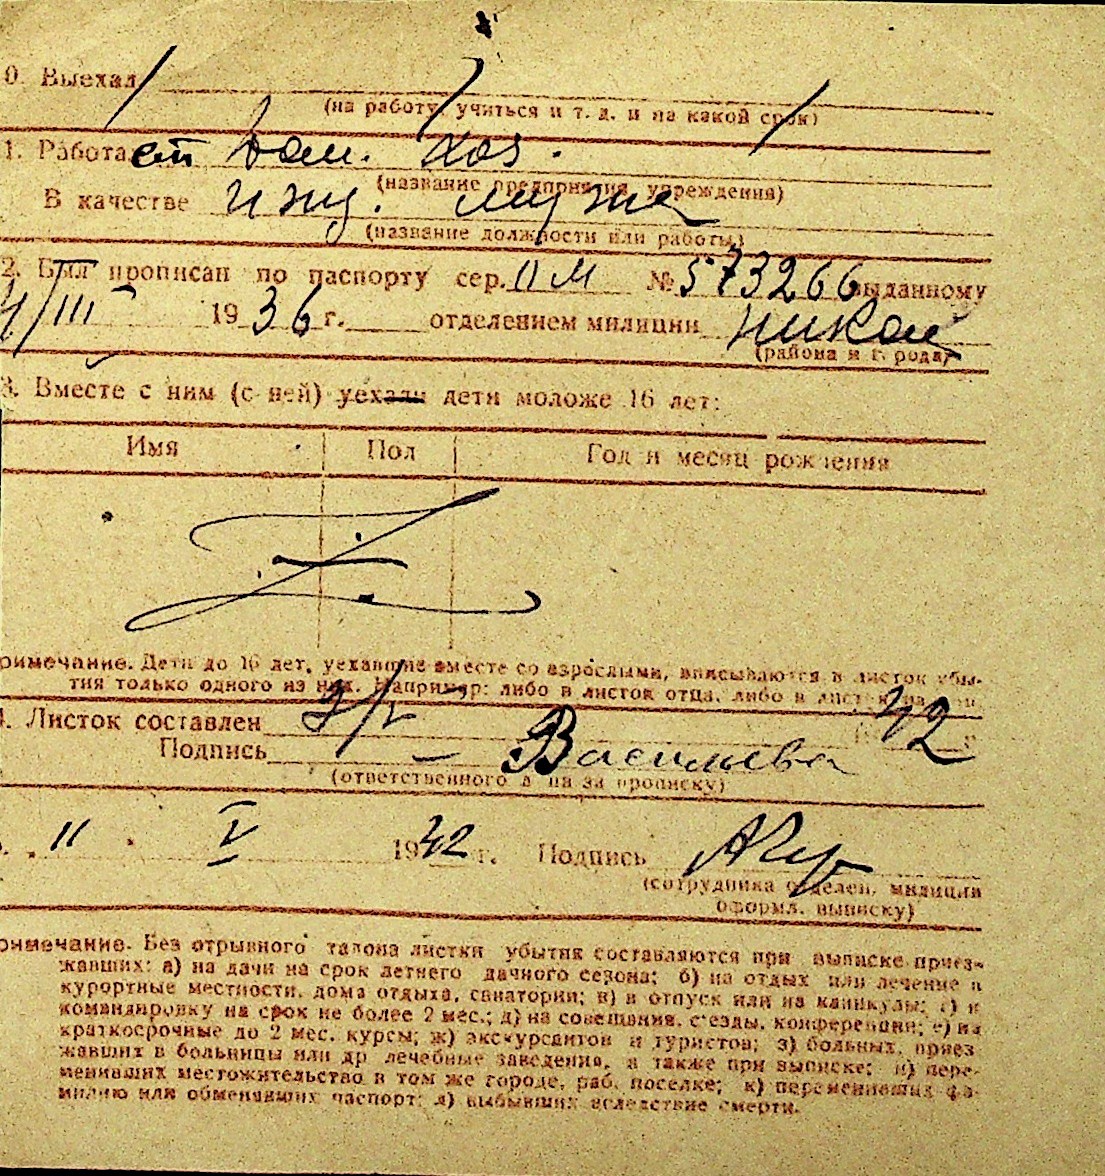 0. Выехал
(на работу, учиться и т. д. и на какой срок)
1. Работает Дом. Хоз.
(название предприятия, учреждения)
В качестве ижд. мужа
(название должности или работы)
2. Был прописан по паспорту сер. II М № 573266 выданному
/III 1936 г. отделением милиции
(района и города)
3. Вместе с ним (с ней) уехали дети моложе 16 лет:
Имя Пол Год и месяц рождения
римечание. Дети до 16 лет, уехавшие вместе со взрослыми, вписываются в листок убы-
тия только одного из них. Например: либо в листок отца, либо в листок
4. Листок составлен 42 г.
Подпись Васильева
(ответственного лица за прописку)
11 V 1942 г. Подпись
(сотрудника отделен. милиции
оформл. выписку)
римечание. Без отрывного талона листки убытия составляются при выписке приез-
жавших: а) на дачи на срок летнего дачного сезона; б) на отдых или лечение в
курортные местности, дома отдыха, санатории; в) в отпуск или на каникулы; г) в
командировку на срок не более 2 мес.; д) на совещания, с'езды, конференции; е) на
краткосрочные до 2 мес. курсы; ж) экскурсантов и туристов; з) больных, приез
жавших в больницы или др лечебные заведения, а также при выписке; и) пере-
менивших местожительство в том же городе, раб. поселке; к) переменивших фа-
милию или обменявших паспорт; л) выбывших вследствие смерти.